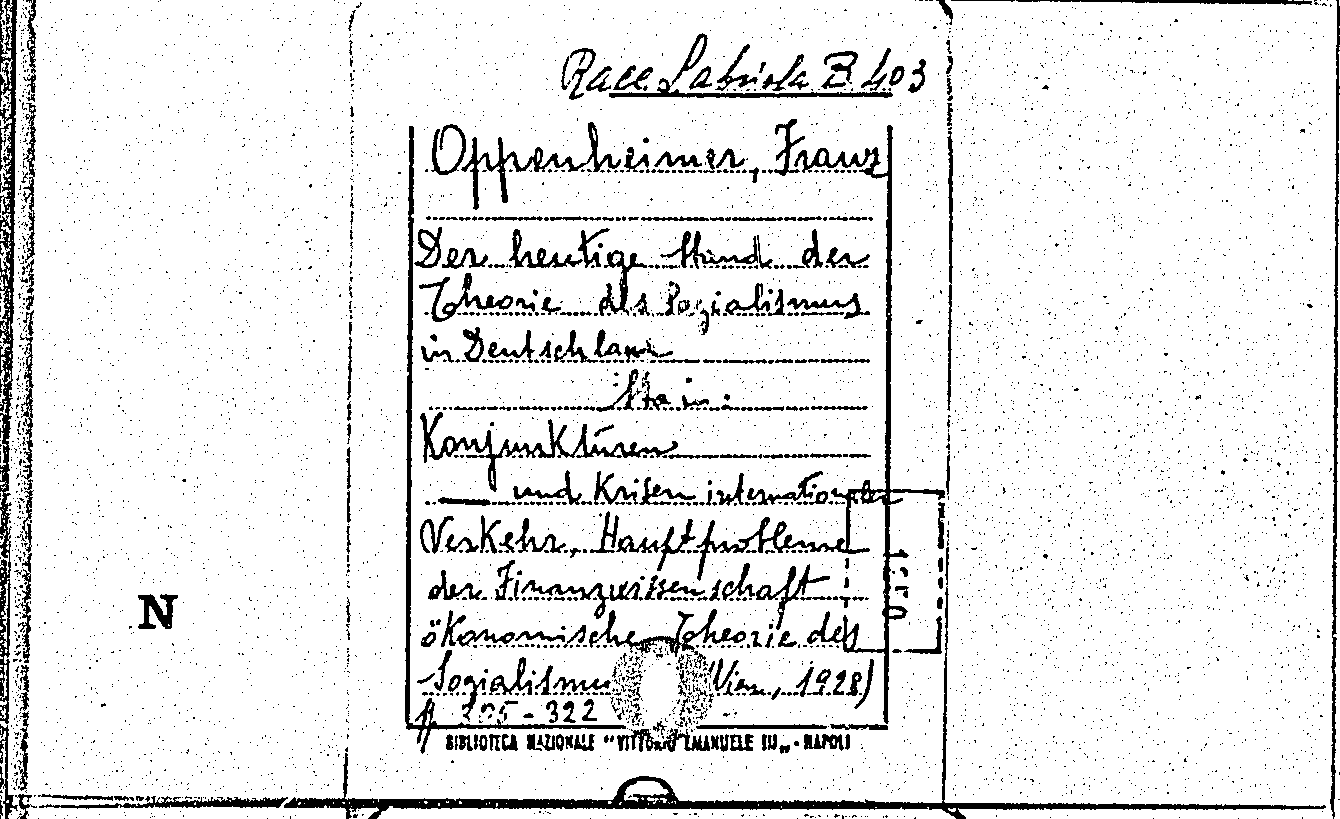 Racc. Labriola B 403
Oppenheimer, Franz
Der heutige Stand der
Theorie des Sozialismus
in Deutschland
Sta in:
Konjunkturen
— und Krisen internationaler
Verkehr, Hauptprobleme
der Finanzwissenschaft
ökonomische Theorie des
Sozialismu (Wien, 1928)
- 322
BIBLIOTECA NAZIONALE "VITTORIO EMANUELE III" - NAPOLI
N